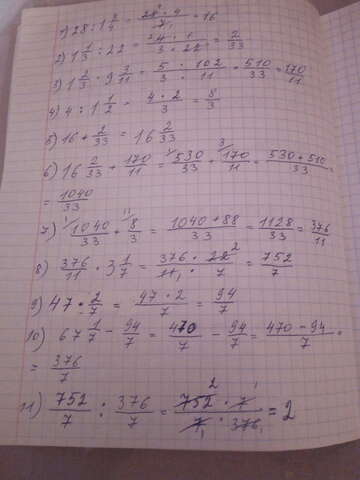 1) 28 : 1 3/4 = 28 · 4 / 7 = 16
2) 1 1/3 : 22 = 4 · 1 / 3 · 22 = 2/33
3) 1 2/3 · 9 3/11 = 5 · 102 / 3 · 11 = 510/33 = 170/11
4) 4 : 1 1/2 = 4 · 2 / 3 = 8/3
5) 16 + 2/33 = 16 2/33
6) 16 2/33 + 170/11 = 530/33 + 170/11 = 530 + 510 / 33 =
= 1040/33
7) 1040/33 + 8/3 = 1040 + 88 / 33 = 1128/33 = 376/11
8) 376/11 · 3 1/7 = 376 · 22 / 11 · 7 = 752/7
9) 47 · 2/7 = 47 · 2 / 7 = 94/7
10) 67 1/7 - 94/7 = 470/7 - 94/7 = 470 - 94 / 7 =
= 376/7
11) 752/7 : 376/7 = 752 · 7 / 7 · 376 = 2